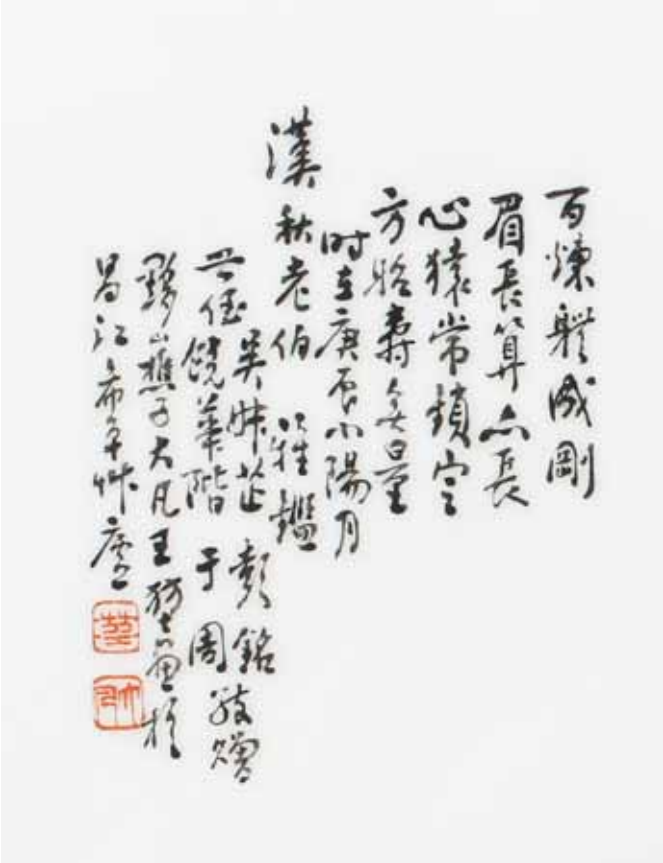 百煉軆成剛
眉長算亦長
心猿常鎖定
方壽無量
時在庚辰小陽月
漢秋老伯 雅鑑
吳妹芷 彭銘
世侄饒華階 于周 敬贈
黟山樵子大凡王堃畫於
昌江希平艸廬